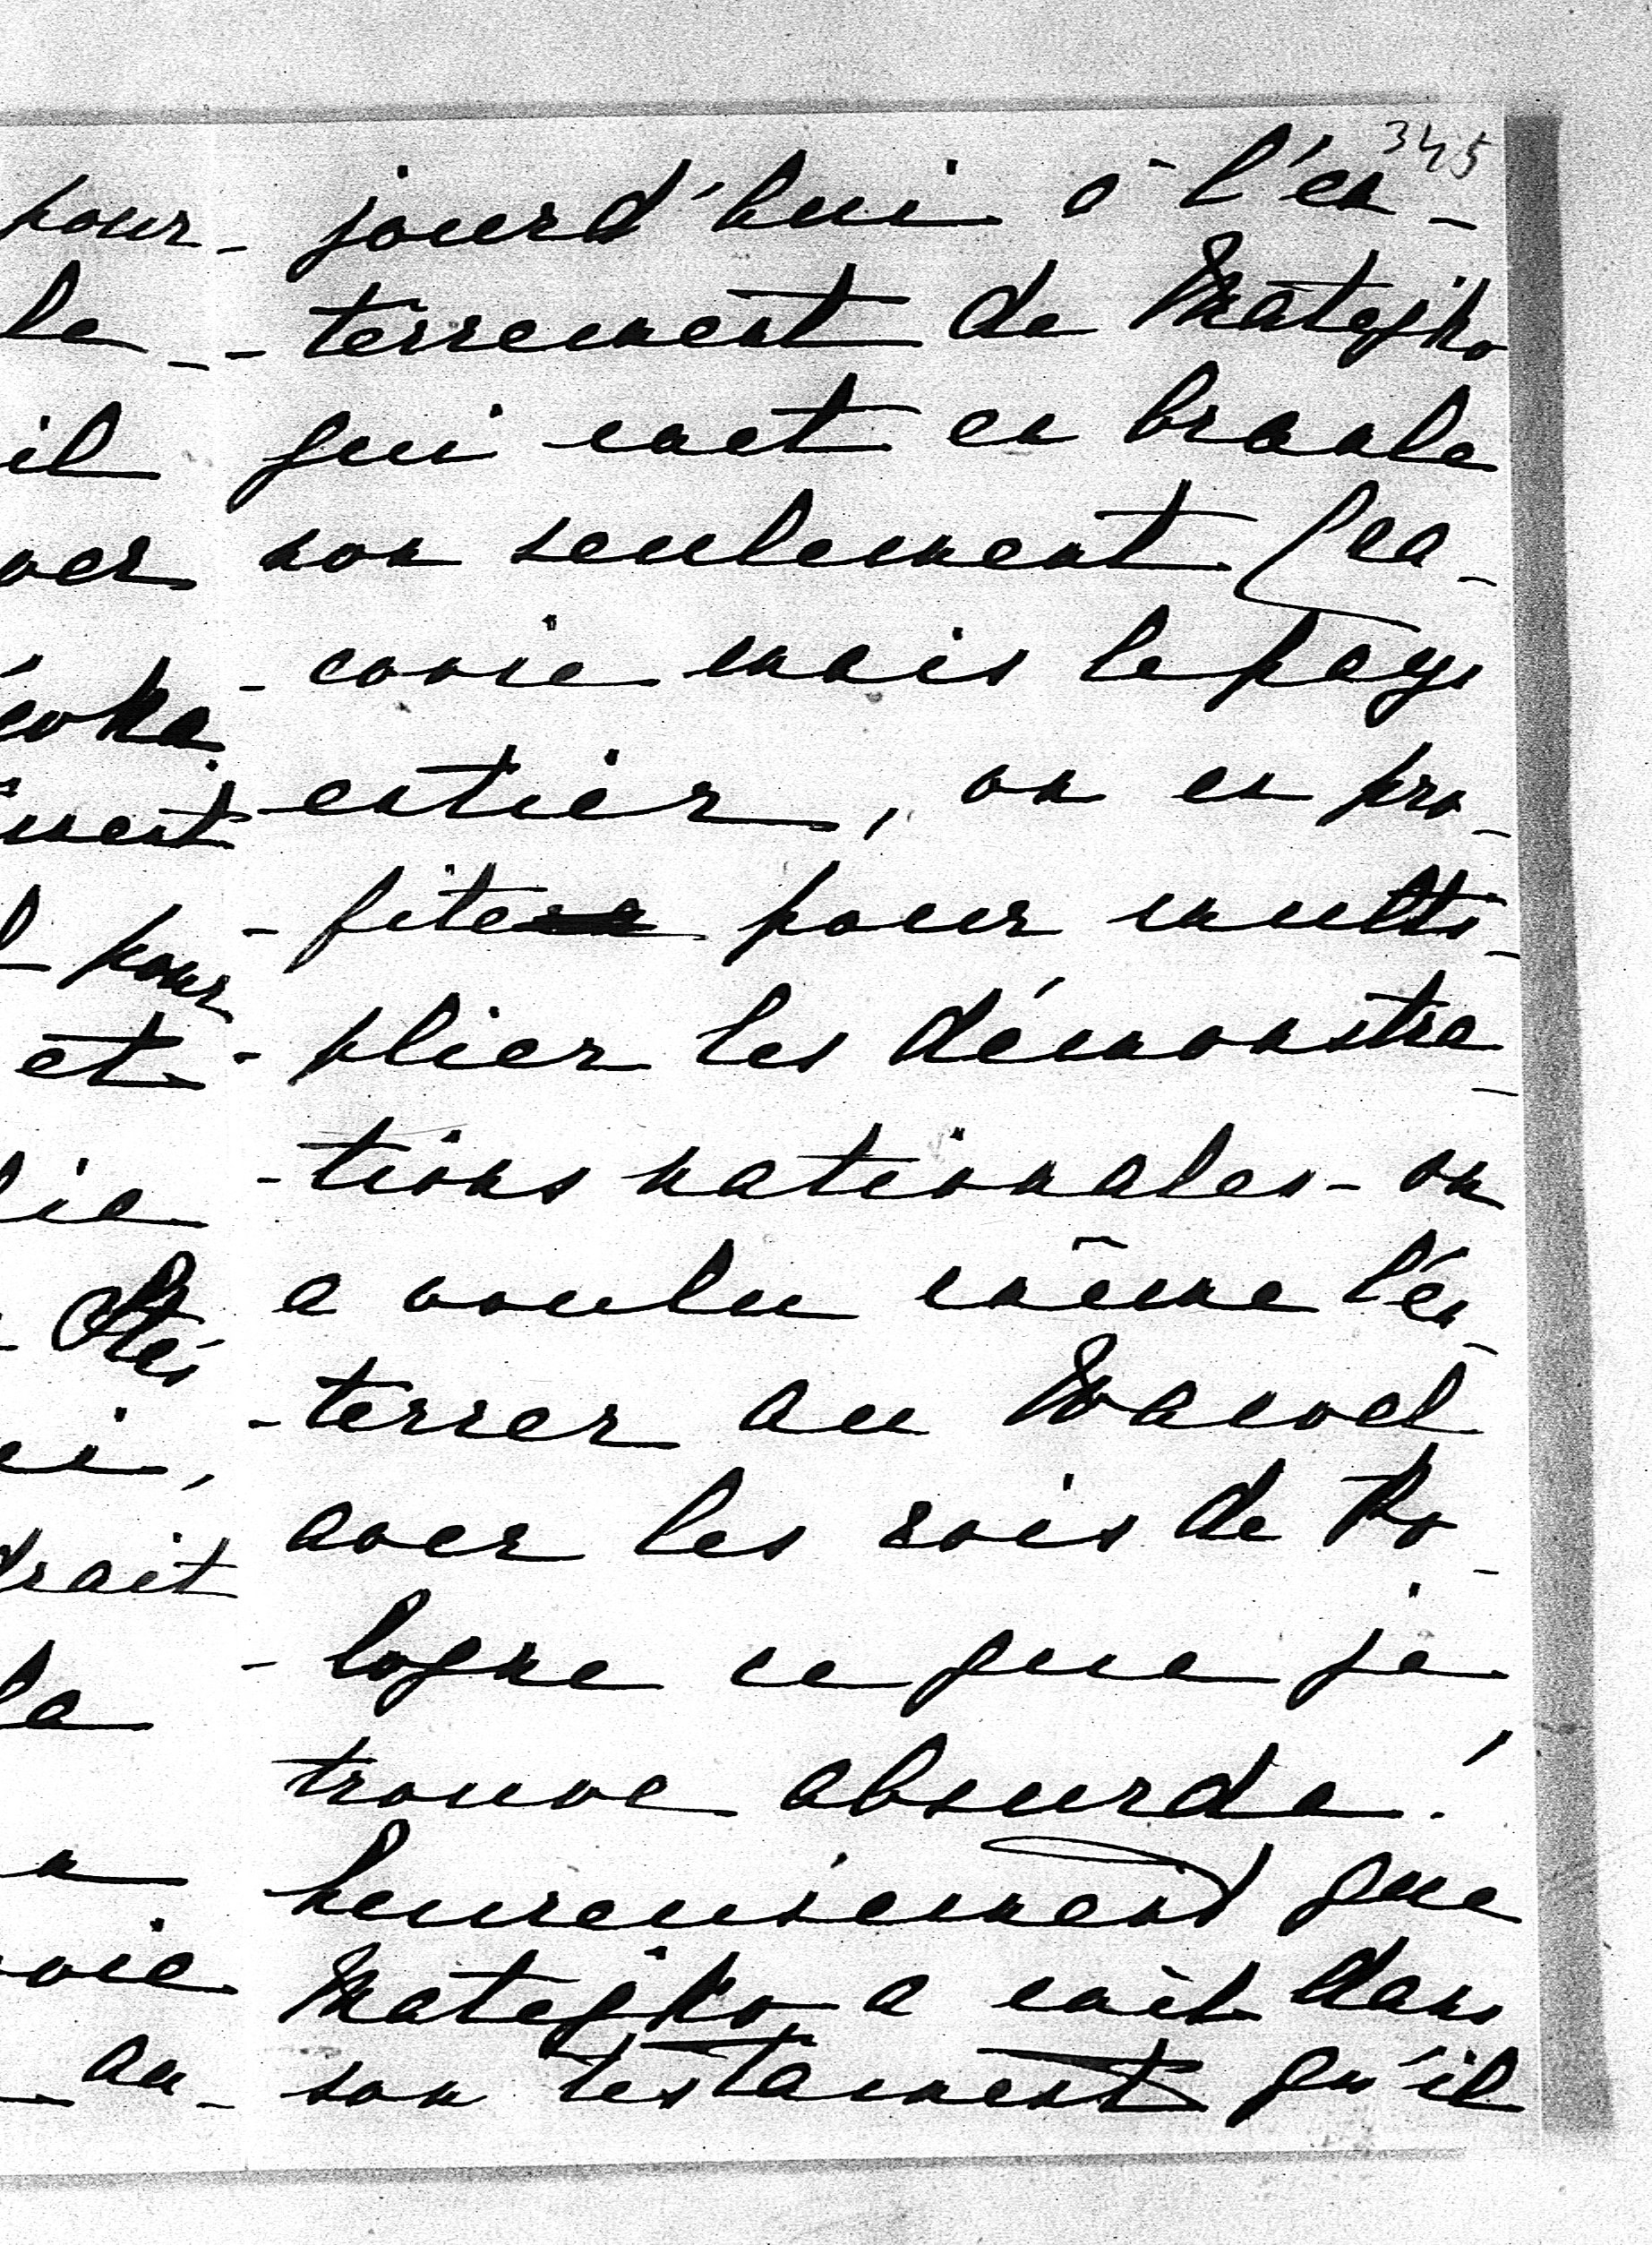 345
jourd'hui à l'en-
-terrement de Matejko
qui met en branle
non seulement Cra-
-covie mais le pays
entier, on en pro-
-fite pour multi-
-plier les démonstra-
-tions nationales - on
a voulu même l'en-
-terrer au Wawel
avec les rois de Po-
-logne ce que je
trouve absurde!
heureusement que
Matejko a mis dans
son testament qu'il
pour-
le -
il
ver
ment
pour
et
lie
ei,
drait
la
voie
au-